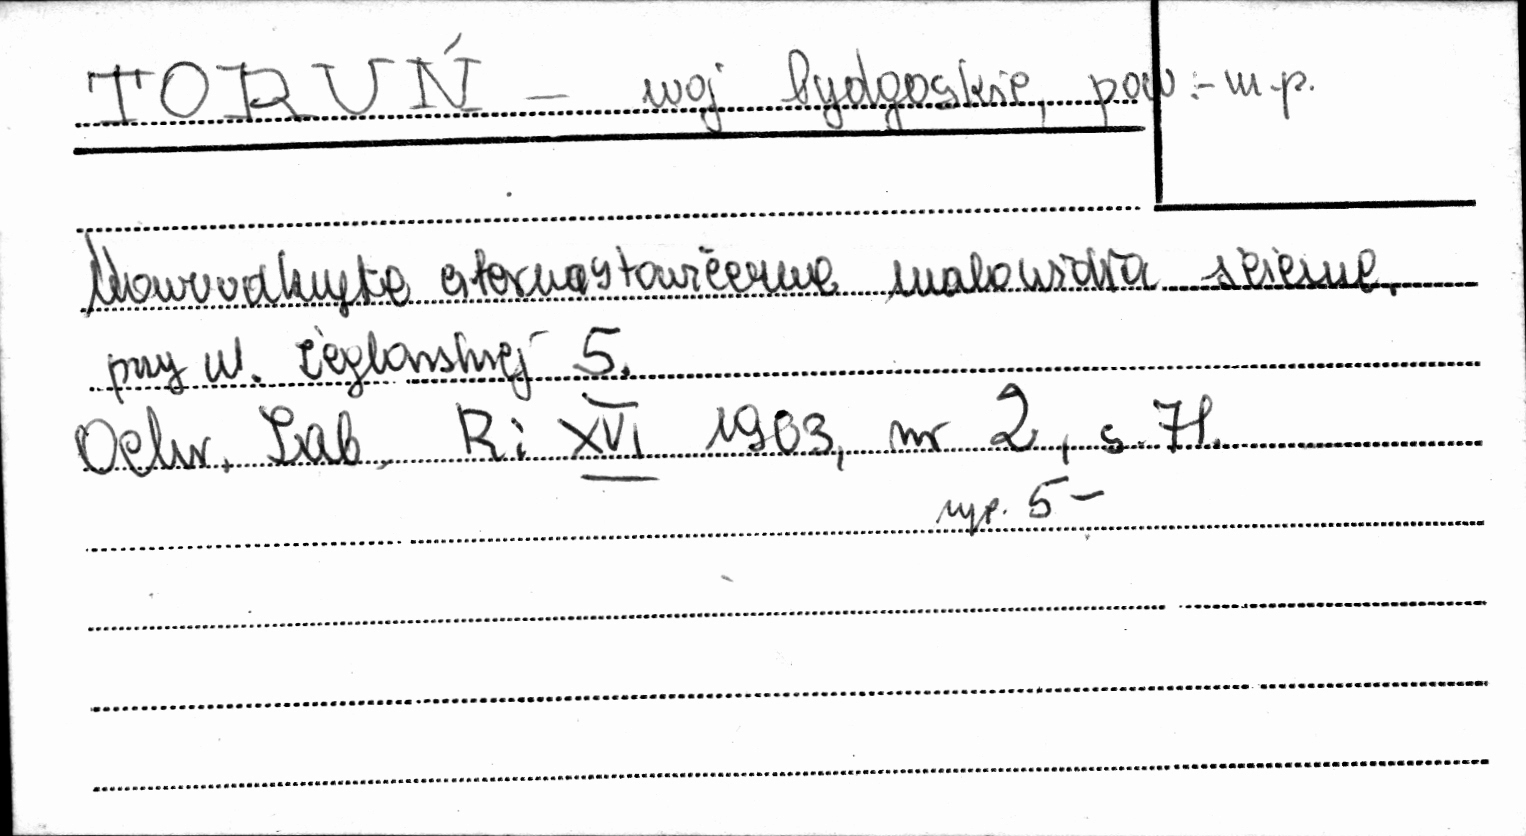 TORUŃ – woj bydgoskie, pow :- m.p.
Nowoodkryte czternastowieczne malowidła ścienne,
przy ul. Żeglarskiej 5.
Ochr. Zab. R: XVI 1963, nr 2, s. 71.
ryc. 5 –